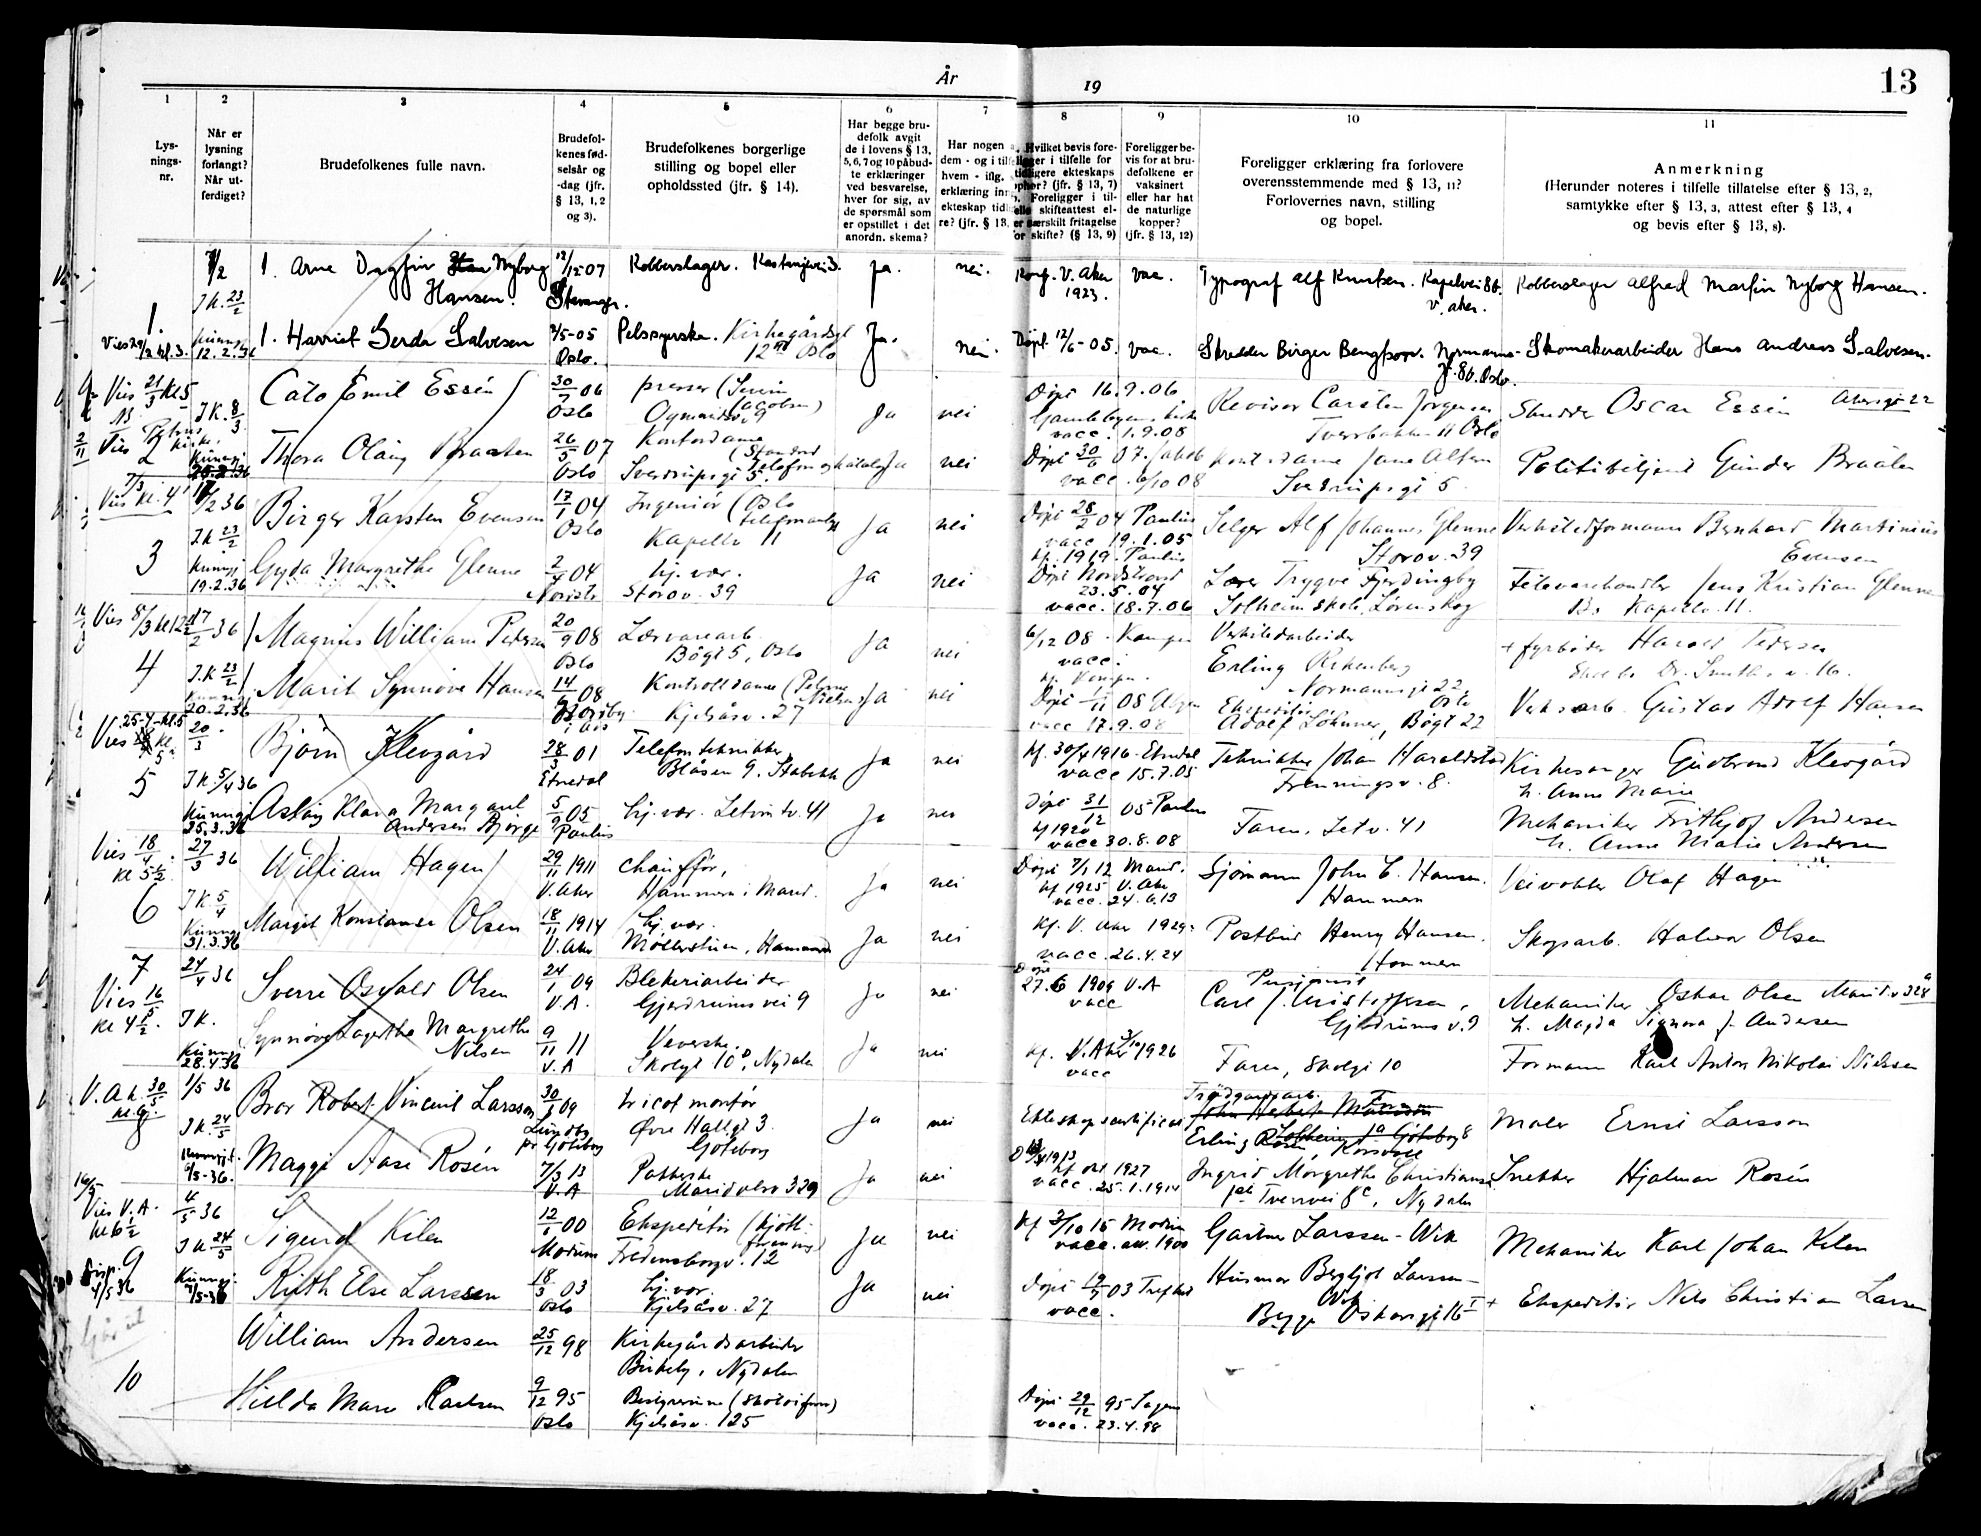 År 19
13
1 2 3 4 5 6 7 8 9 10 11
Lys-
nings-
nr.
Når er
lysning
forlangt?
Når ut-
ferdiget?
Brudefolkenes fulle navn.
Brudefol-
kenes fød-
selsår og
-dag (jfr.
§ 13, 1, 2
og 3).
Brudefolkenes borgerlige
stilling og bopel eller
opholdssted (jfr. § 14).
Har begge bru-
defolk avgit
de i lovens § 13,
5, 6, 7 og 10 påbud-
te erklæringer
ved besvarelse,
hver for sig, av
de spørsmål som
er opstillet i det
anordn. skema?
Har nogen
dem - og i tilf
hvem - iflg.
erklæring in
ekteskap tid
re? (jfr. § 13,
Hvilket bevis fore-
ligger i tilfelle for
tidligere ekteskaps
ophør? (jfr. § 13, 7)
Foreligger i til-
felle skifteattest el-
er særskilt fritagelse
for skifte? (§ 13, 9)
Foreligger be-
vis for at bru-
defolkene er
vaksinert
eller har hat
de naturlige
kopper?
(jfr. § 13, 12)
Foreligger erklæring fra forlovere
overensstemmende med § 13, 11?
Forlovernes navn, stilling
og bopel.
Anmerkning
(Herunder noteres i tilfelle tillatelse efter § 13, 2,
samtykke efter § 13, 3, attest efter § 13, 4
og bevis efter § 13, 8).
1.
7/2
J.K. 23/2
1. Arne Dagfin Nyborg
Hansen.
12/12-07
Stavanger.
Kobberslager. Kastanjevei 3.
Ja.
nei.
Konf. V. Aker
1923.
vac.
Typograf Alf Knutsen. Kapelvei 8b.
V. Aker.
Kobberslager Alfred Martin Nyborg Hansen.
Vies 29/2 kl. 3.
12.2.36
1. Harriet Gerda Salvesen
2/5-05
Oslo.
Pelssyerske. Kirkegårdsgt
12 Oslo
Ja.
nei.
Døpt 12/6-05.
vac.
Skredder Birger Bengtson. Normanns-
gt. 8b. Oslo.
Skomakerarbeider Hans Andreas Salvesen.
Vies 21/3 kl 5
J K. 8/3
Cato Emil Essén
30/7 06
Oslo
presser (Severin
Jacobsen)
9
Ja
nei
Døpt 16.9.06
Gamlebyens kirke
vacc. 1.9.08
Revisor Carsten Jørgensen
Tverrbakken 11 Oslo
Skredder Oscar Essén Akersgt 22
2
Vies
Thora Olaug Braaten
26/5 07
Oslo
Kontordame
(Standard
Telefon og Kabel
Sverdrupsgt 5.
Ja
nei
Døpt 30/6 07. Jakob
vacc. 6/10 08
Kontordame Jane Alfsen
Sverdrupsgt 5
Politibetjent Gunder Braaten
7/3
Vies kl. 4
17/2 36
J K 23/2
Birger Karsten Evensen
17/1 04
Oslo
Ingeniør (Oslo
telefonanlegg
Kapellv 11
Ja
nei
Døpt 28/2 04 Paulus
vacc 19.1.05
kf. 1919. Paulus
Selger Alf Johannes Glenne
Storov. 39
Verkstedformann Bernhard Martinius
Evensen
3
Kunngj
19.2.36
Gyda Margrethe Glenne
2/4 04
Nordstr
hj. vær.
Storov. 39
Ja
nei
Døpt Nordstrand
23.5.04
vacc. 18.7.06
Lærer Trygve Fjerdingby
Solheim skole, Lørenskog
Felevarehandler Jens Kristian Glenne
Kapellv. 11.
Vies 8/3 kl 12½
17/2 36
Magnus William Pedersen
20/9 08
Oslo
Lærvarearb.
Bøgt 5, Oslo
Ja
nei
6/12 08. Kampen
vacc.
Verkstedarbeider
Erling Rikenberg
Normannsgt 22
Oslo
+ fyrbøter Harald Pedersen
4
J.K 23/2
Kunngj
20.2.36
Marit Synnøve Hansen
14/6 08
i Ås
Kontrolldame (Peterne
Nielsen)
Kjelsåsv. 27
Ja
nei
Døpt 1/11 08
vacc 17.9.08
Ekspeditør
Adolf Løhmer, Bøgt 22
Verksarb. Gustav Adolf Hansen
25-4-kl.5
Vies
20/3
Bjørn Klevgård
28/3 01
Etnedal
Telefontekniker
Blåsen 9. Stabekk
Ja
nei
kf. 30/4 1916. Etnedal
vacc 15.7.05
Tekniker Johan Haraldstad
Frenningsv. 8.
Kirkesanger Gudbrand Klevgård
h. Anne Marie
5
J K. 5/4 36
Kunngj
25.3.36
Aslaug Klara Margaret
Andersen Bjørge
5/9 05
Paulus
hj. vær. Setrev. 41
Ja
nei
Døpt 31/12 05 Paulus
kf 1920
vacc 30.8.08
Faren, Setv. 41
Mekaniker Fritjof Andersen
h. Anne Marie Andersen
Vies 18/4.
kl 5½
27/3 36
William Hagen
29/11 1911
V. Aker
Chauffør,
Hammeren i Marid.
Ja
nei
Døpt 7/1 12 Marid.
kf 1925 V. Aker
vacc. 24.6.13
Sjømann John C. Hansen.
Hammeren
Veivokter Olaf Hagen
6
J K 5/4
Kunngj
31.3.36
Margit Konstanse Olsen
18/11 1914
V. Aker
hj. vær.
Møllerstuen, Hammeren
Ja
nei
Kf. V. Aker 1929.
vacc. 26.4.24
Postbud Henry Hansen.
Hammeren
Skogsarb. Halvor Olsen
7
24/4 36
Vies 16/5
kl 4½.
J K.
Sverre Osvald Olsen
24/1 09
V.A.
Blekeriarbeider
Gjerdrumsvei 9
Ja
nei
Døpt
27.6 1909 V.A
vacc
Pensjonist
Carl J. Kristoffersen,
Gjerdrums v. 9
Mekaniker Oskar Olsen Marid.v 328
h. Magda Signora f. Andersen
Kunngj
28.4.36
Synnøve Lagertha Margrethe
Nilsen
9/11 11
V.A
Veverske
Skolegt 10, Nydalen
Ja
nei
Kf. V. Aker 3/10 1926
vacc
Faren, Skolegt 10
Formann Karl Anton Nikolai Nielsen
V. A k. 30/5
kl. 9.
1/5 36
J K. 24/5
Bror Robert Vincent Larsson
30/3 09
Lundby
pr Göteborg
tricot montør
Övre Hallgt 3.
Göteborg
Ja
nei
Ekteskapscertificat
Trädgårdsarb.
Erling Rosén Korsvoll
Maler Ernst Larsson
8
Kunngjt.
6/5-36.
Maggi Aase Rosén
7/3 13
V.A
Pakkerske
Maridalsv 329
Ja
nei
kf okt 1927
vacc. 25.1.1914
Ingrid Margrethe Christiansen
Tverrvei 8c, Nydalen
Snekker Hjalmar Rosén
16/5
Vies V.A.
kl 6½
4/5 36
J K 24/5
Sigurd Kilen
12/1 00
Modum
Ekspeditør (kjøtt-
forening)
Fredensborgv. 12
Ja
nei
kf 3/10 15 Modum
vacc. att. 1900
Gartner Larssen-Wik
Mekaniker Karl Johan Kilen
9
4/5 36
Kunngj.
7/5-36
Ruth Else Larssen
18/3 03
Oslo
hj. vær.
Kjelsåsv. 27
Ja
nei
Døpt 19/7 03 Trefold
vacc.
Husmor Bergljot Larssen-
Wik
Bygge Oskarsgt 16
+ Ekspeditør Nils Christian Larsen
10
William Andersen
25/12 98
Kirkegårdsarbeider
Birkely, Nydalen
Hilda Marie Karlsen
9/12 95
Oslo
Bestyrerinne (skotøiforr.)
Kjelsåsv. 125
Døpt 29/12 95 Sagene
vacc. 23.4.98